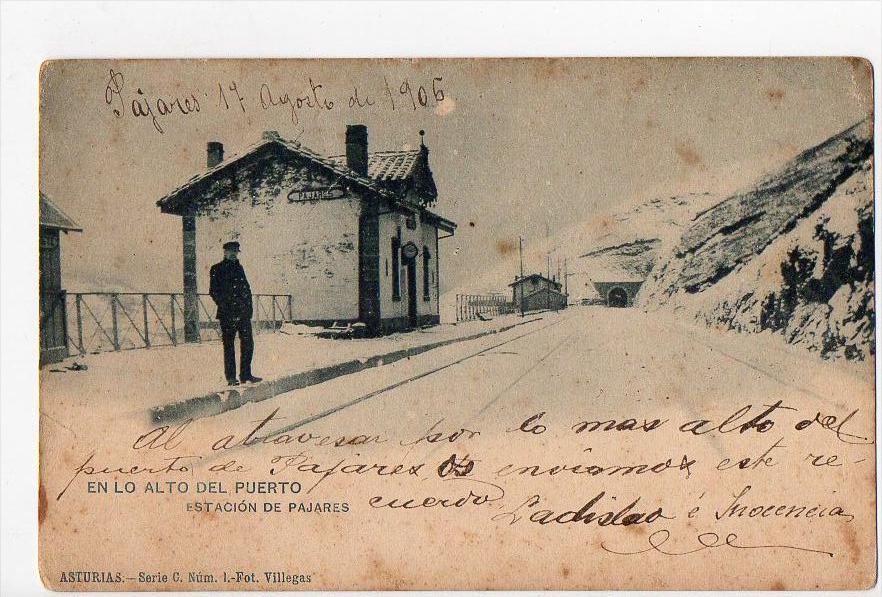 Pajares 17 Agosto de 1906
PAJARES
Al atravesar por lo mas alto del
puerto de Pajares os enviamos este re-
cuerdo Ladislao é Inocencia
EN LO ALTO DEL PUERTO
ESTACIÓN DE PAJARES
ASTURIAS.—Serie C. Núm. 1.-Fot. Villegas